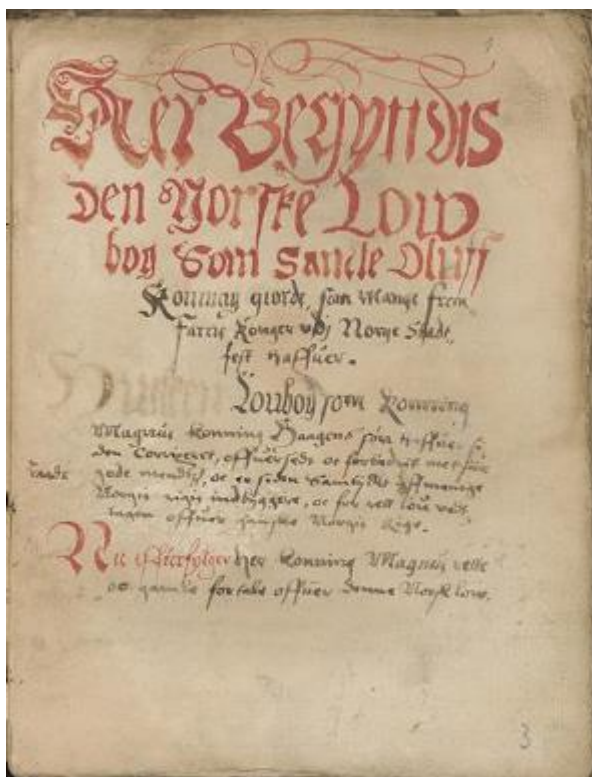 1
Her Begyndis
den Norske Low
bog Som Sancte Oluff
Konning giorde, som Mange frem
farne Konger udj Norge Stad
fest haffuer.
Loubog som Konning
Magnus Konning Haagens søn haffuer si
den Corrigeret, offuerseet oc forbedrit met sine
raads gode mendtz, oc er siden samtyckt aff menige
Norgis rigis indbyggere, oc for rett lou ved
tagen offuer gandske Norgis Rige.
Nu effterfølger her Konning Magnus rette
oc gamble fortale offuer denne Norsk low.
3